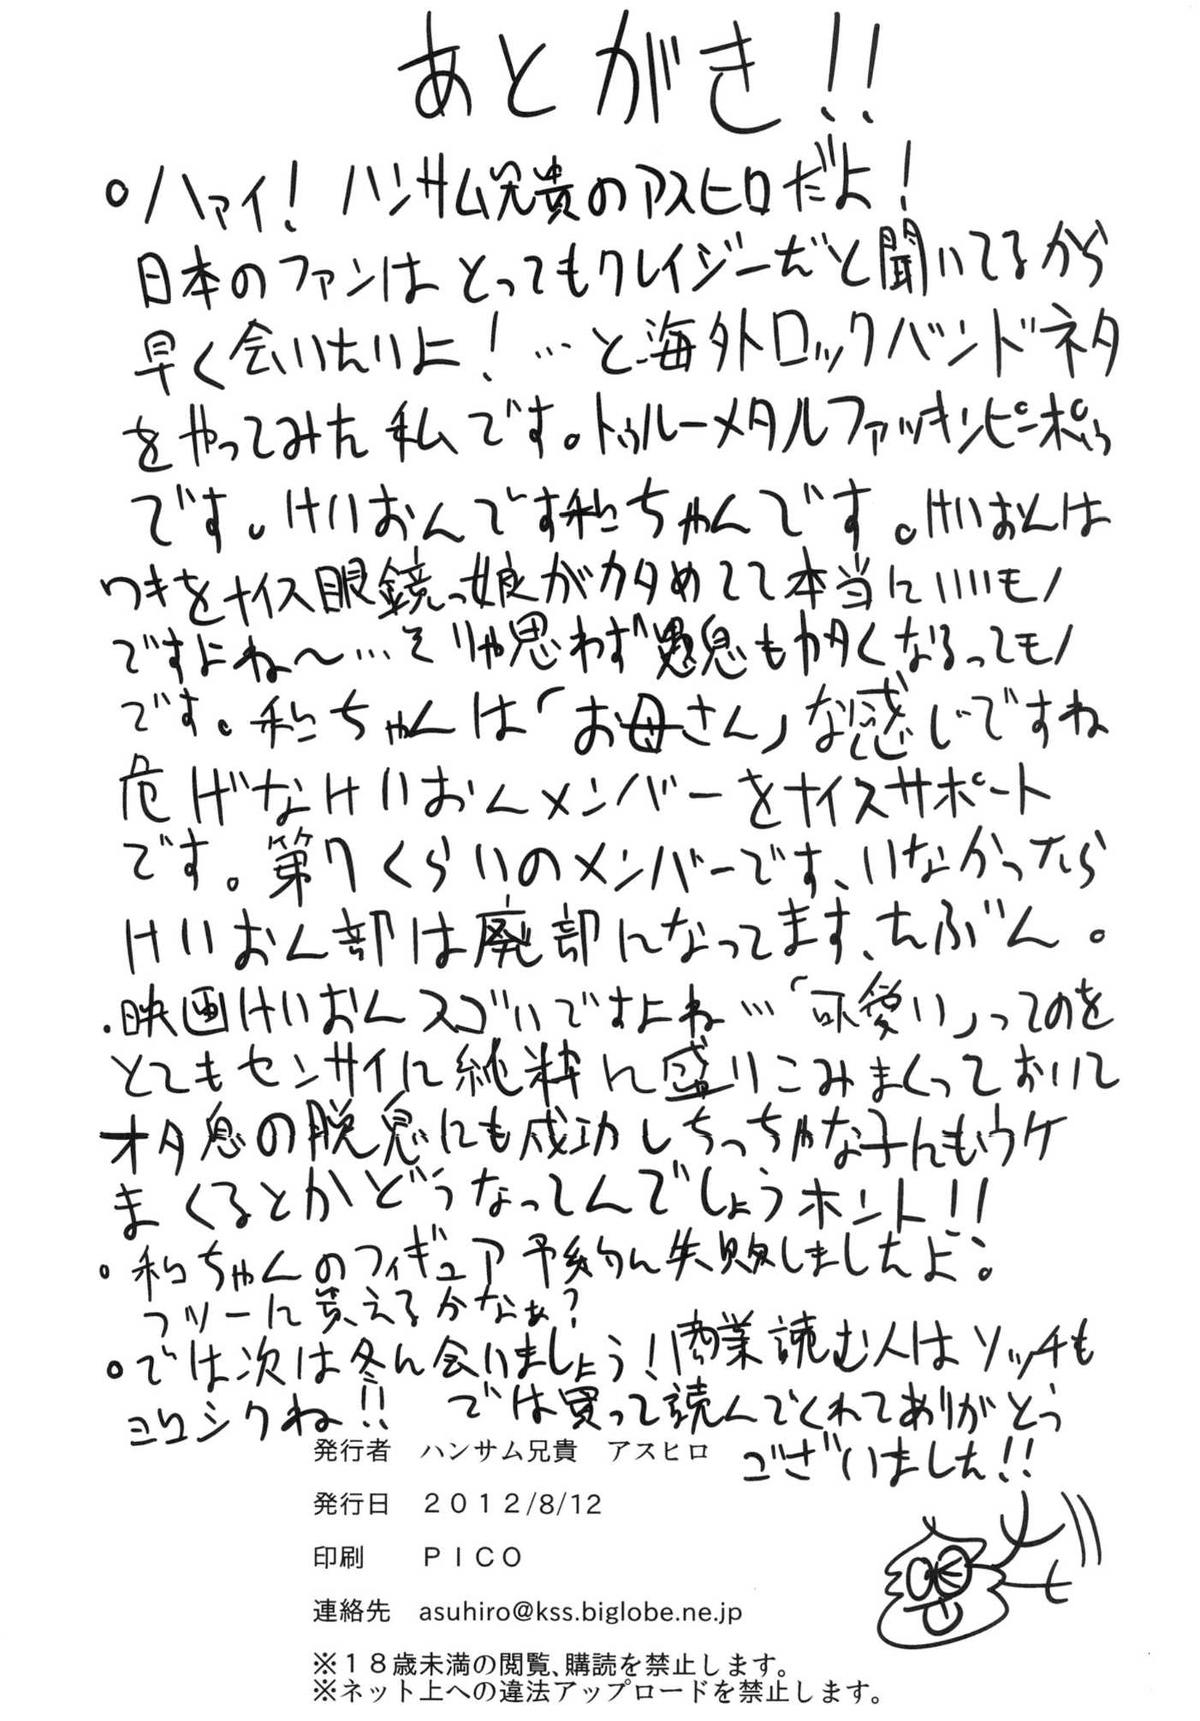 あとがき!!
ハァイ! ハンサム兄貴のアスヒロだよ!
日本のファンはとってもクレイジーだと聞いてるから
早く会いたいよ! …と海外ロックバンドネタ
をやってみた私です。トゥルーメタルファッキンピーポゥ
です。けいおんです和ちゃんです。けいおんは
ワキをナイス眼鏡っ娘がカタめてて本当にいいモノ
ですよね〜…そりゃ思わず愚息もカタくなるってモノ
です。和ちゃんは「お母さん」な感じですね
危げなけいおんメンバーをナイスサポート
です。第7くらいのメンバーです、いなかったら
けいおん部は廃部になってます、たぶん。
・映画けいおんスゴいですよね…「可愛い」ってのを
とてもセンサイに純粋に盛りこみまくっておいて
オタ息の脱息にも成功しちっちゃな子にもウケ
まくるとかどうなってんでしょうホント!!
・和ちゃんのフィギュア予約に失敗しましたよ。
フツーに買えるかなぁ?
・では次は冬に会いましょう! 商業読む人はソッチも
ヨロシクね!! では買って読んでくれてありがとう
ございました!!
発行者 ハンサム兄貴 アスヒロ
発行日 2012/8/12
印刷 PICO
連絡先 asuhiro@kss.biglobe.ne.jp
※18歳未満の閲覧、購読を禁止します。
※ネット上への違法アップロードを禁止します。